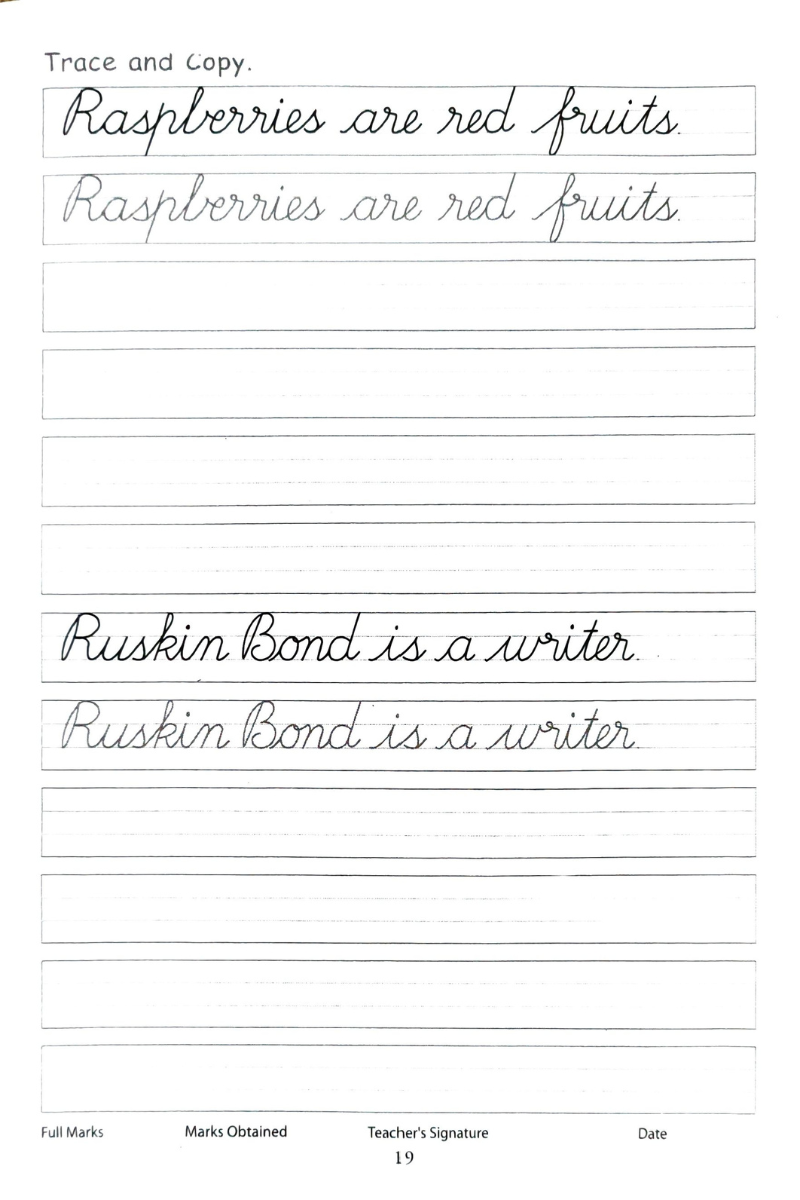 Trace and Copy.
Raspberries are red fruits.
Raspberries are red fruits.
Ruskin Bond is a writer.
Ruskin Bond is a writer.
Full Marks Marks Obtained Teacher's Signature Date
19